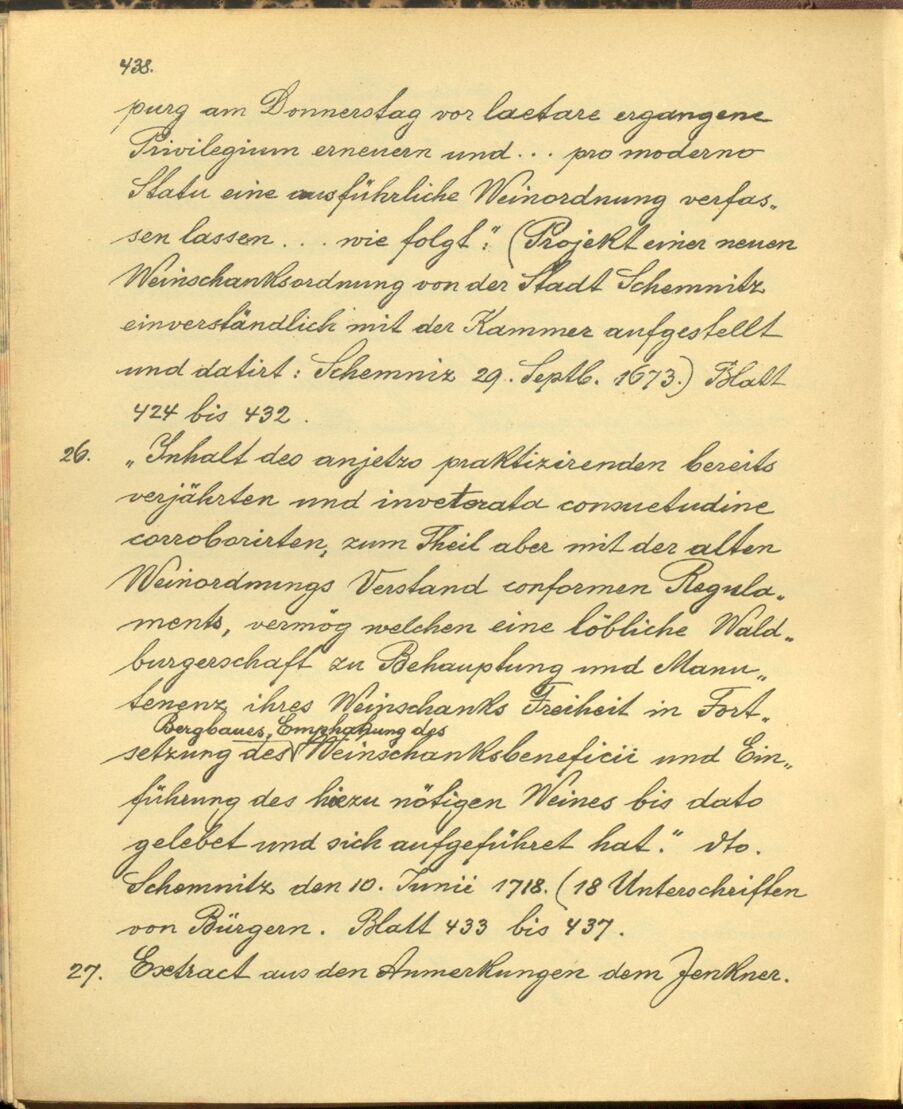 438.
purg am Donnerstag vor laetare ergangene
Privilegium erneuern und... pro moderno
Statu eine ausführliche Weinordnung verfas„
sen lassen.... wie folgt": (Projekt einer neuen
Weinschanksordnung von der Stadt Schemnitz
einverständlich mit der Kammer aufgestellt
und datirt: Schemniz 29. Septb. 1673.) Blatt
424 bis 432.
26. „Inhalt des anjetzo praktizirenden bereits
verjährten und inveterata consuetudine
corroborirten, zum Theil aber mit der alten
Weinordnungs Verstand conformen Regula„
ments, vermög welchen eine löbliche Wald„
burgerschaft zu Behauptung und Manu„
tenenz ihres Weinschanks Freiheit in Fort„
Bergbaues, Emphahung des
setzung des Weinschanksbeneficii und Ein„
führung des hiezu nötigen Weines bis dato
gelebet und sich aufgeführet hat." dto.
Schemnitz den 10. Junii 1718. (18 Unterschriften
von Bürgern. Blatt 433 bis 437.
27. Extract aus den Anmerkungen dem Jenkner.